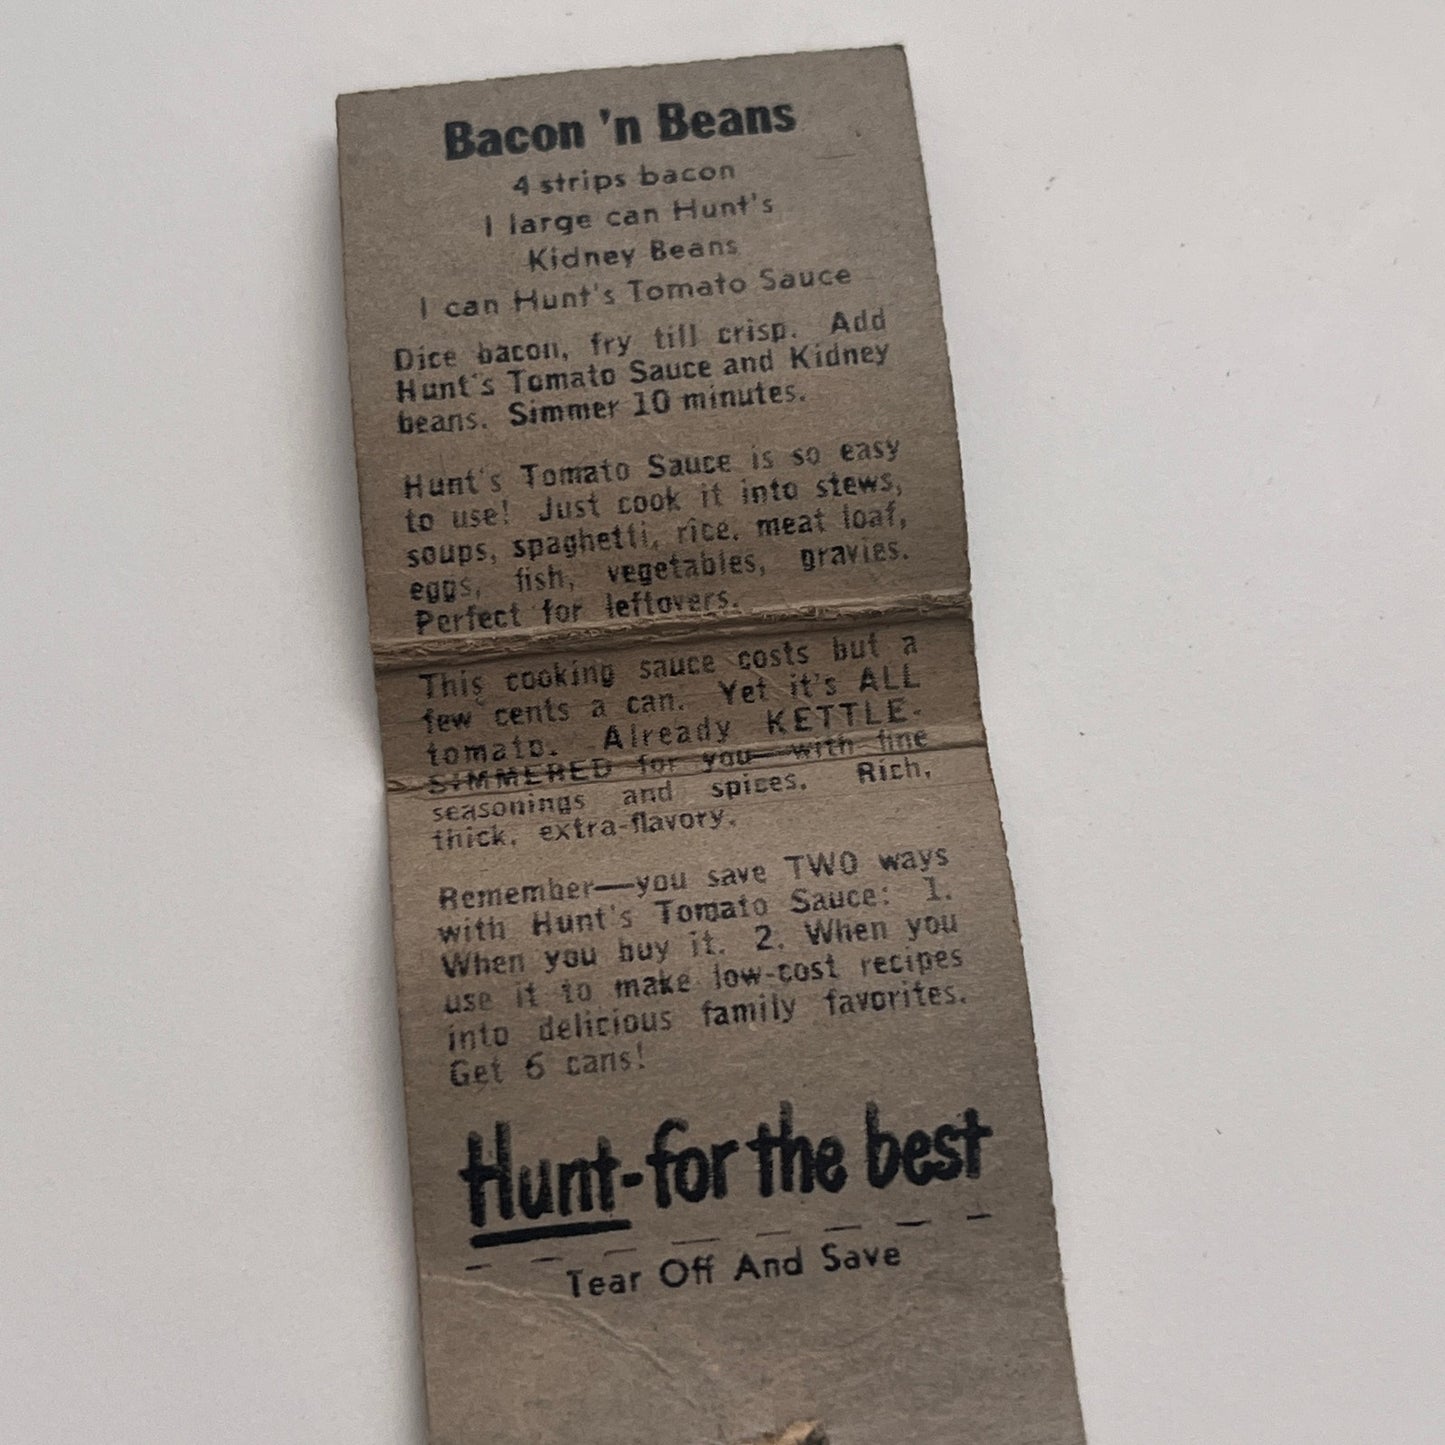 Bacon 'n Beans
4 strips bacon
1 large can Hunt's
Kidney Beans
1 can Hunt's Tomato Sauce
Dice bacon, fry till crisp. Add
Hunt's Tomato Sauce and Kidney
beans. Simmer 10 minutes.
Hunt's Tomato Sauce is so easy
to use! Just cook it into stews,
soups, spaghetti, rice, meat loaf,
eggs, fish, vegetables, gravies.
Perfect for leftovers.
This cooking sauce costs but a
few cents a can. Yet it's ALL
tomato. Already KETTLE-
SIMMERED for you—with fine
seasonings and spices. Rich,
thick, extra-flavory.
Remember—you save TWO ways
with Hunt's Tomato Sauce: 1.
When you buy it. 2. When you
use it to make low-cost recipes
into delicious family favorites.
Get 6 cans!
Hunt-for the best
Tear Off And Save